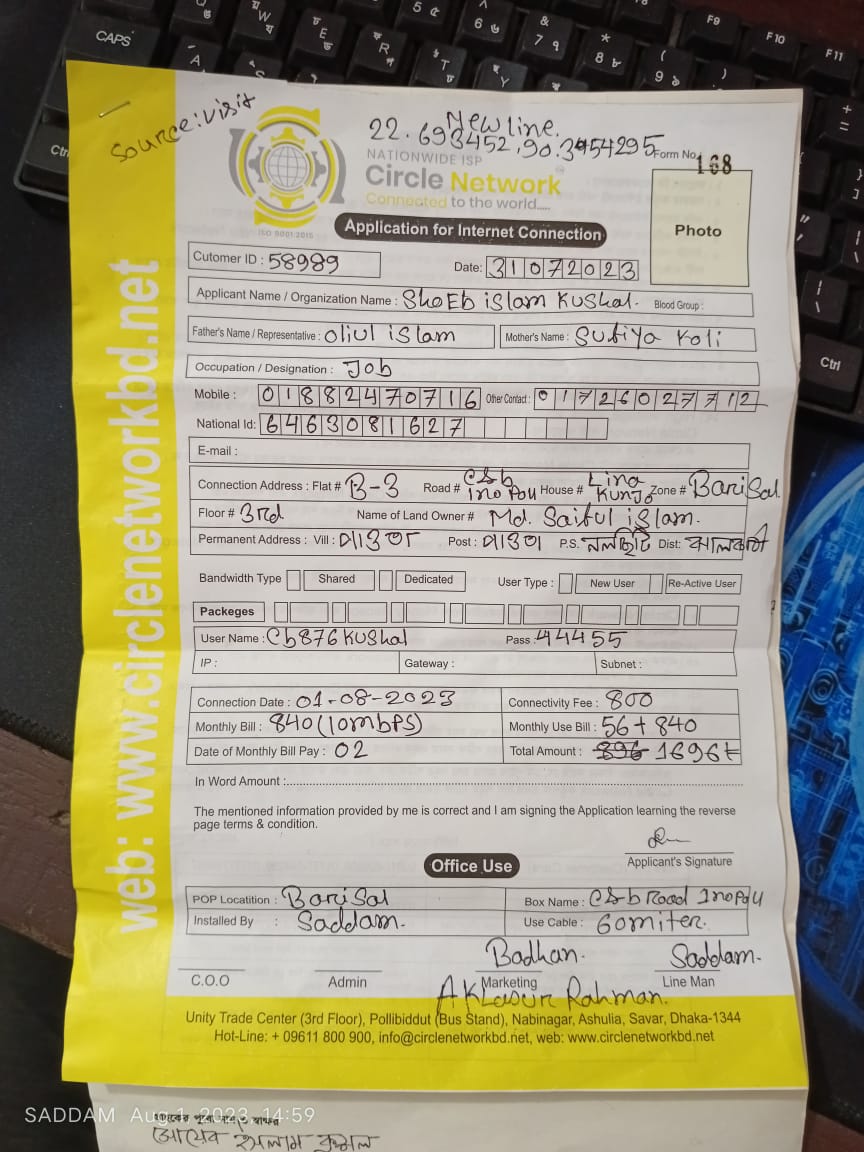 Source: visit
New line.
22.693452, 90.3454295
Form No. 168
NATIONWIDE ISP
Circle Network
Connected to the world.....
ISO 9001:2015
Photo
Application for Internet Connection
Cutomer ID : 58989
Date: 31072023
Applicant Name / Organization Name : ShoEb islam Kushal. Blood Group :
Father's Name / Representative : Oliul islam Mother's Name : Sufiya Koli
Occupation / Designation : Job
Mobile : 01882470716 Other Contact : 01726027712
National Id: 6463081627
E-mail :
Connection Address : Flat # B-3 Road # CSb Inopou House # Lina Kunjo Zone # BariSal
Floor # 3rd Name of Land Owner # Md. Saiful islam.
Permanent Address : Vill : Post : P.S. নলছিটি Dist: ঝালকাঠী
Bandwidth Type Shared Dedicated User Type : New User Re-Active User
Packeges
User Name : Cb876Kushal Pass : 44455
IP : Gateway : Subnet :
Connection Date : 01-08-2023 Connectivity Fee : 800
Monthly Bill : 840 (10mbps) Monthly Use Bill : 56+840
Date of Monthly Bill Pay : 02 Total Amount : 896 1696৳
In Word Amount :
The mentioned information provided by me is correct and I am signing the Application learning the reverse
page terms & condition.
Applicant's Signature
Office Use
POP Locatition : BariSal Box Name : CSb Road Inopou
Installed By : Saddam. Use Cable : 60miter.
Badhan. Saddam.
C.O.O Admin Marketing Line Man
Aklasur Rahman.
Unity Trade Center (3rd Floor), Pollibiddut (Bus Stand), Nabinagar, Ashulia, Savar, Dhaka-1344
Hot-Line: + 09611 800 900, info@circlenetworkbd.net, web: www.circlenetworkbd.net
web: www.circlenetworkbd.net
SADDAM Aug 1, 2023, 14:59
ইসলাম কুশল
CAPS
Ctrl
F9
F10
F11
Ctrl